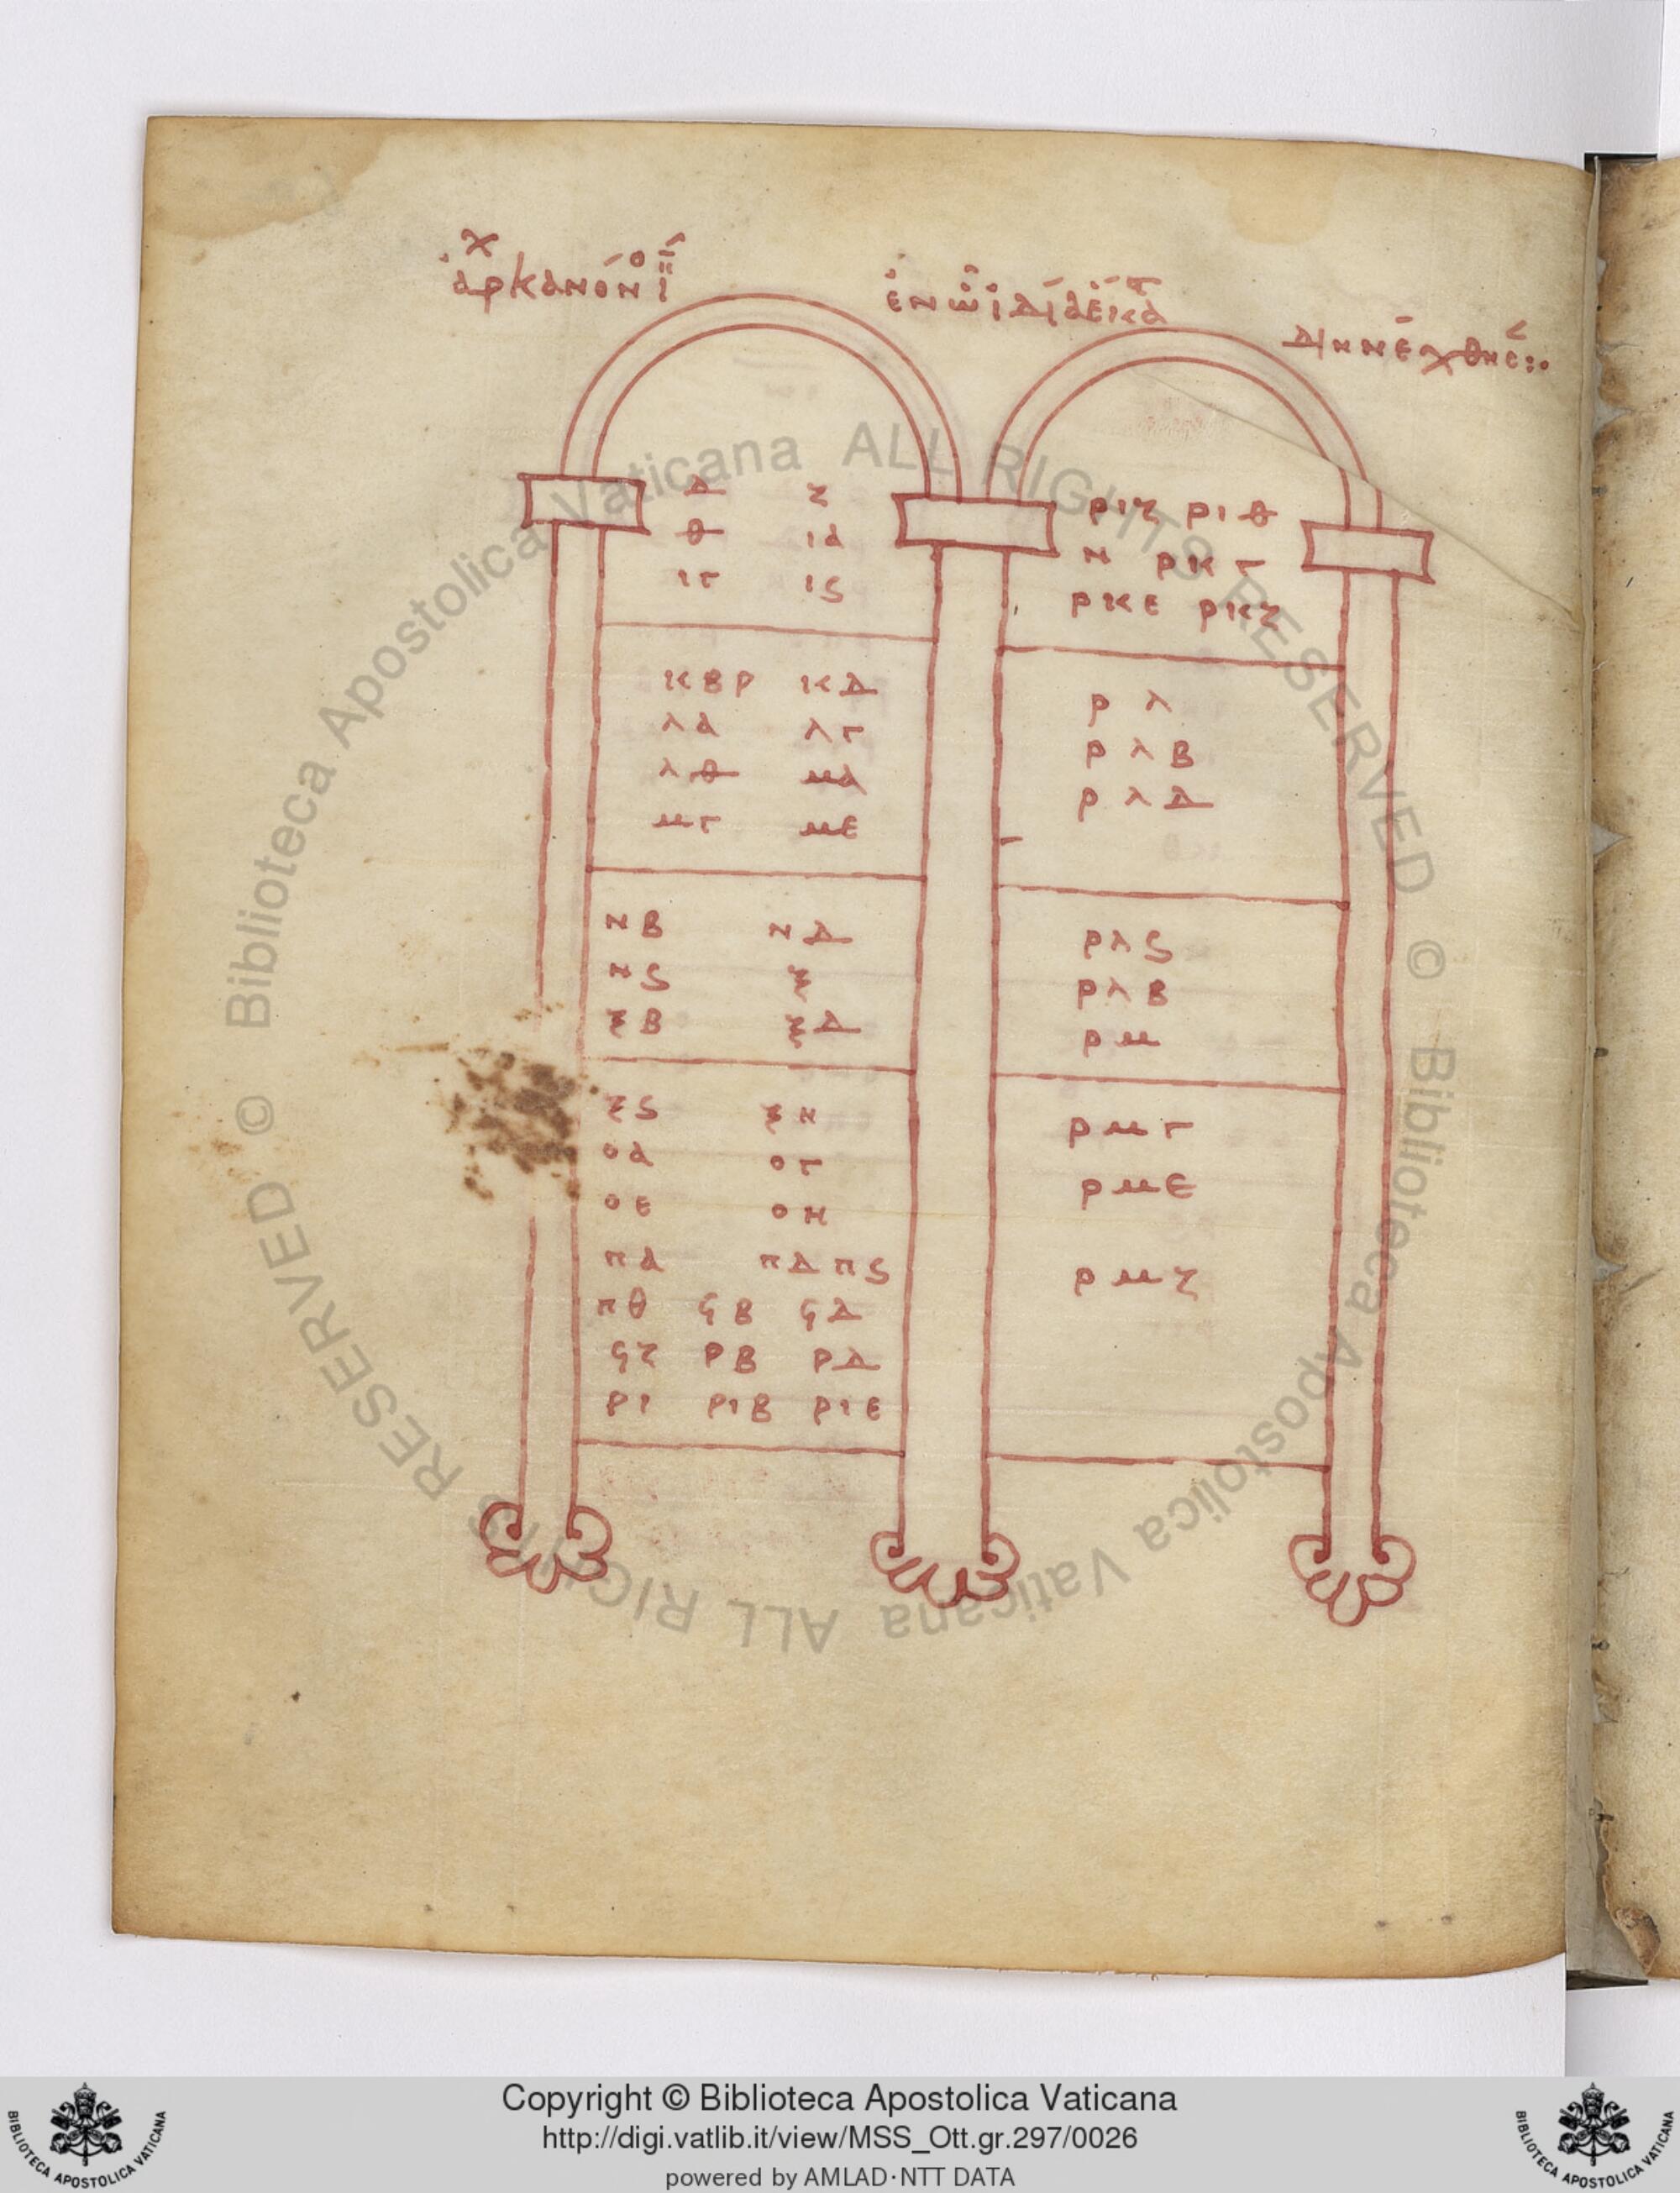 ἀρχ κανόνο ῑ
ἐν ὧ ἰδίᾳ ἕκατ
διηνέχθησ:·
Δ Ζ
Θ ΙΑ
ΙΓ ΙϚ
ΚΒΡ ΚΔ
ΛΑ ΛΓ
ΛΘ ΜΑ
ΜΓ ΜΕ
ΝΒ ΝΔ
ΝϚ Ξ
ΞΒ ΞΔ
ΞϚ ΞΗ
ΟΑ ΟΓ
ΟΕ ΟΗ
ΠΑ ΠΔ ΠϚ
ΠΘ ϞΒ ϞΔ
ϞΖ ΡΒ ΡΔ
ΡΙ ΡΙΒ ΡΙΕ
ΡΙΖ ΡΙΘ
Ν ΡΚΓ
ΡΚΕ ΡΚΖ
ΡΛ
ΡΛΒ
ΡΛΔ
ΡΛϚ
ΡΛΒ
ΡΜ
ΡΜΓ
ΡΜΕ
ΡΜΖ
© Biblioteca Apostolica Vaticana ALL RIGHTS RESERVED © Biblioteca Apostolica Vaticana ALL RIGHTS RESERVED
Copyright © Biblioteca Apostolica Vaticana
http://digi.vatlib.it/view/MSS_Ott.gr.297/0026
powered by AMLAD·NTT DATA
BIBLIOTECA APOSTOLICA VATICANA
BIBLIOTECA APOSTOLICA VATICANA